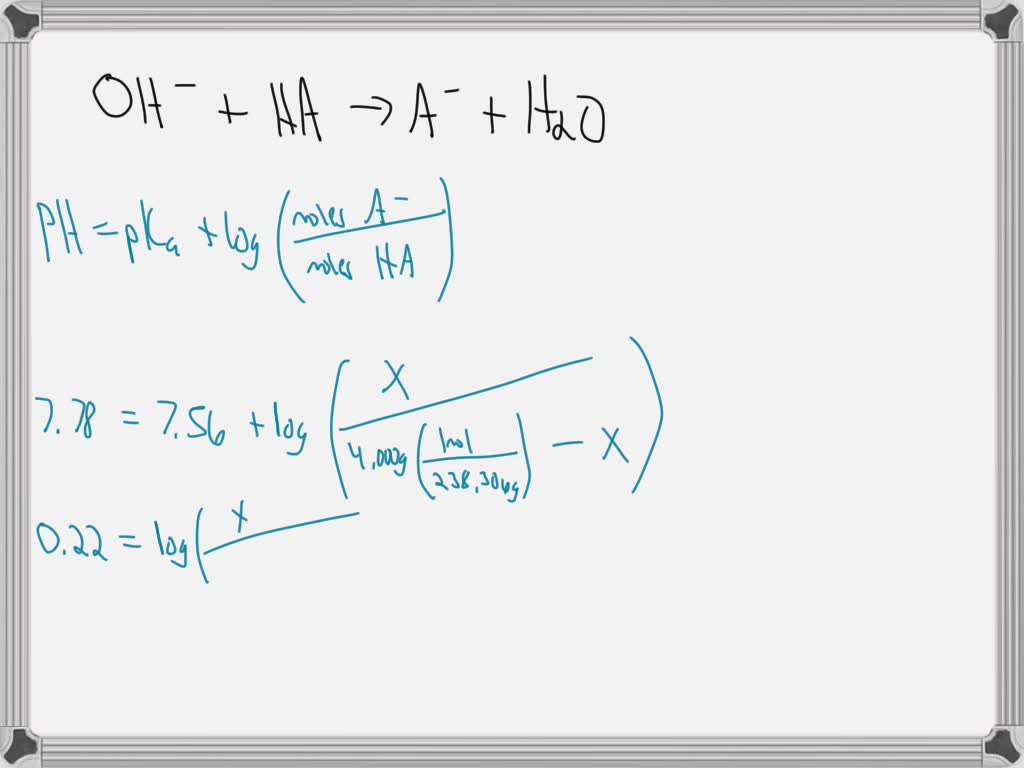 OH⁻ + HA → A⁻ + H₂O
pH = pKa + log (moles A⁻ / moles HA)
7.78 = 7.56 + log (X / 4.000g (1mol / 238.306g) − X)
0.22 = log ( X